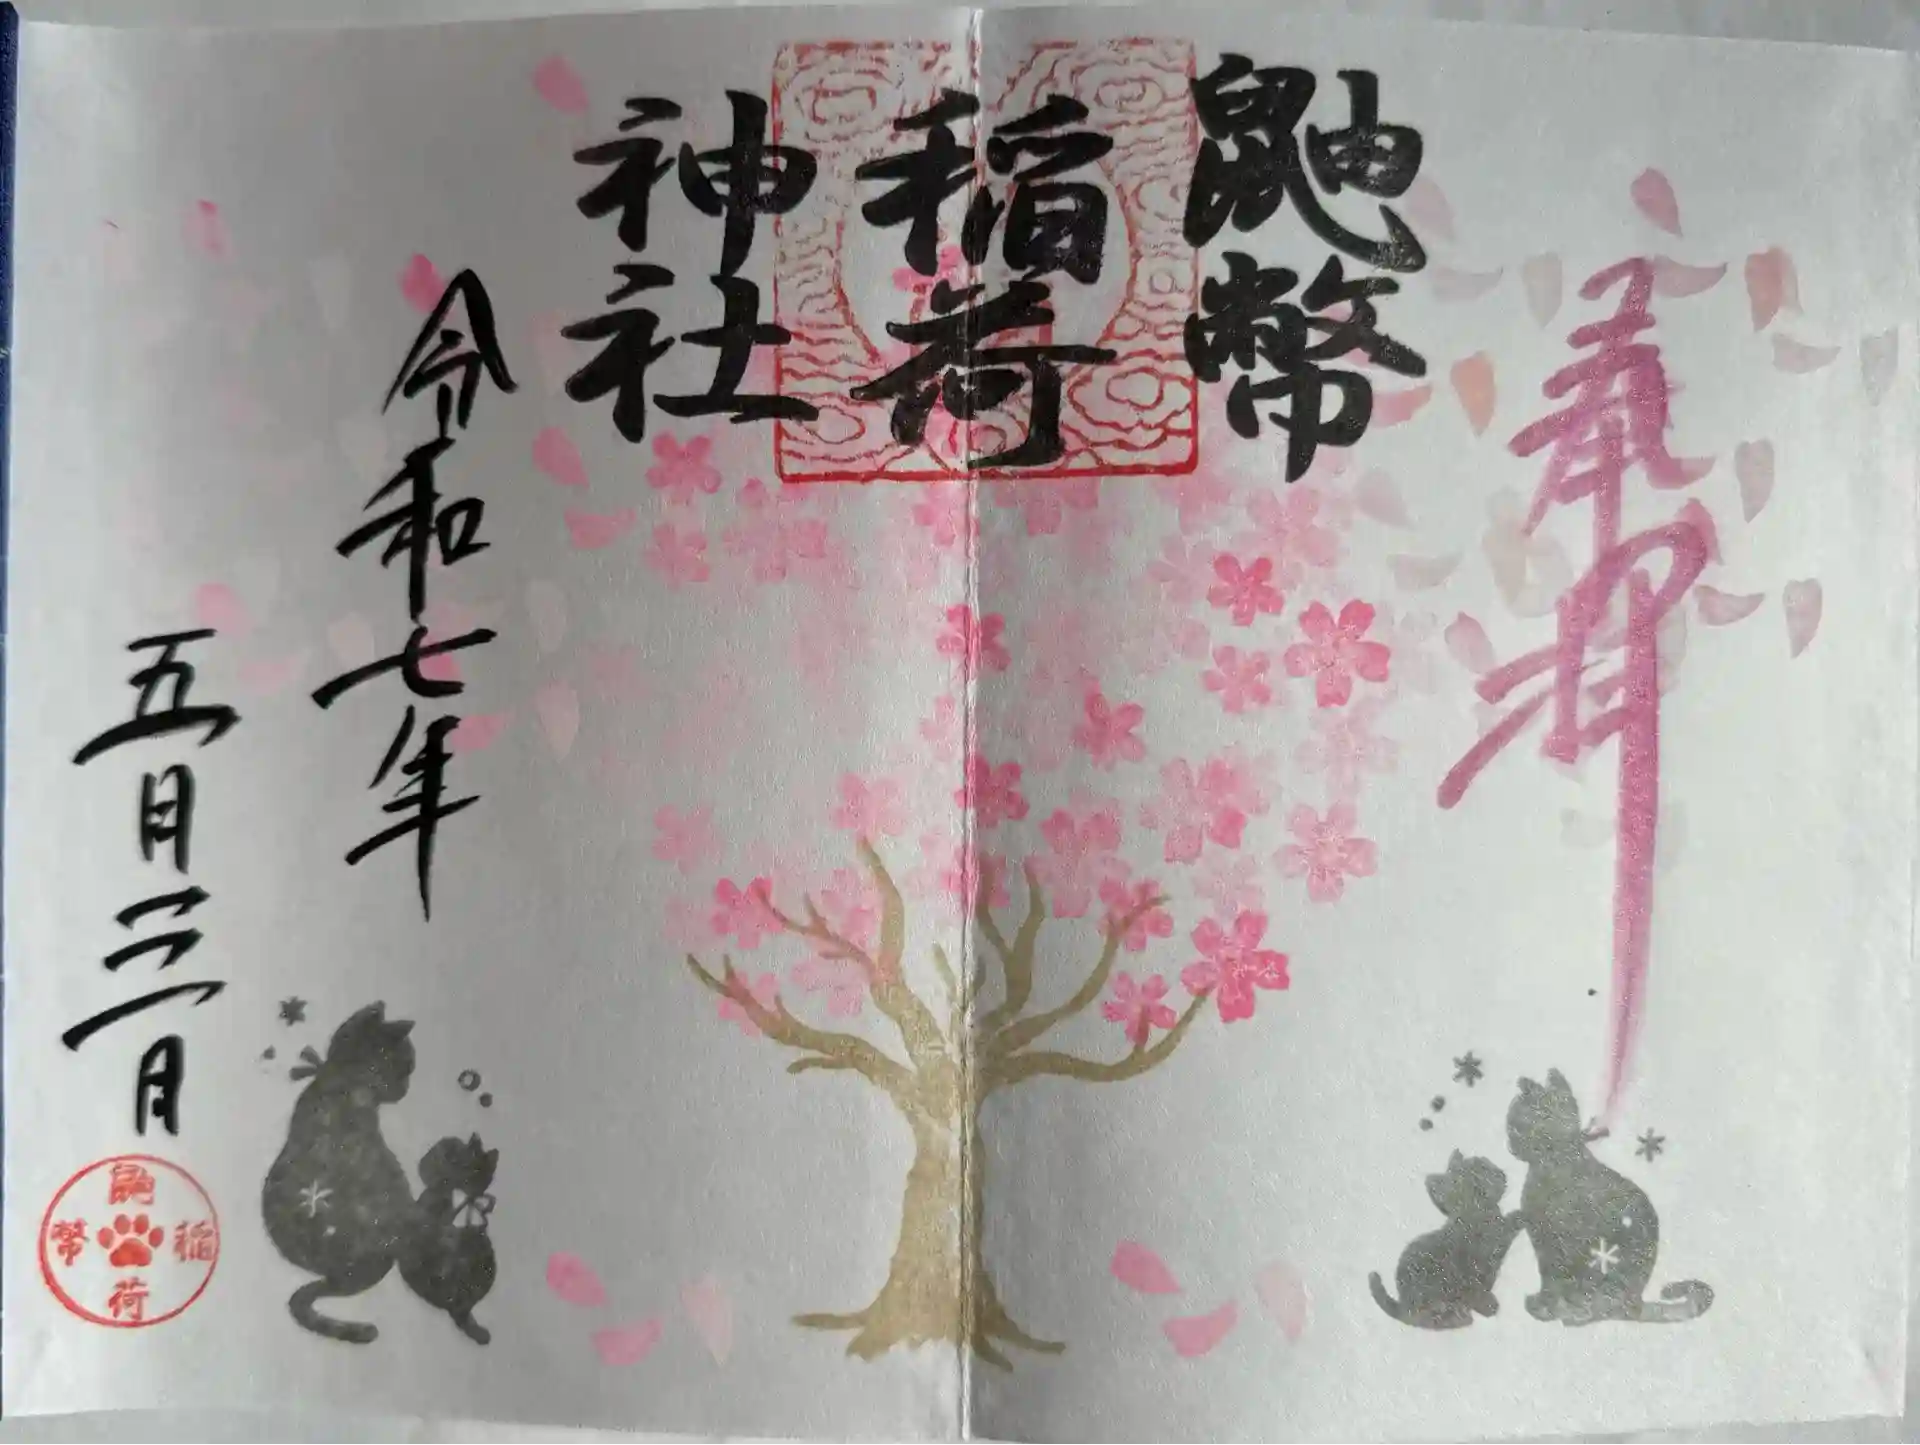 奉拝
鼬幣
稲荷
神社
令和七年
五月三日
鼬幣稲荷